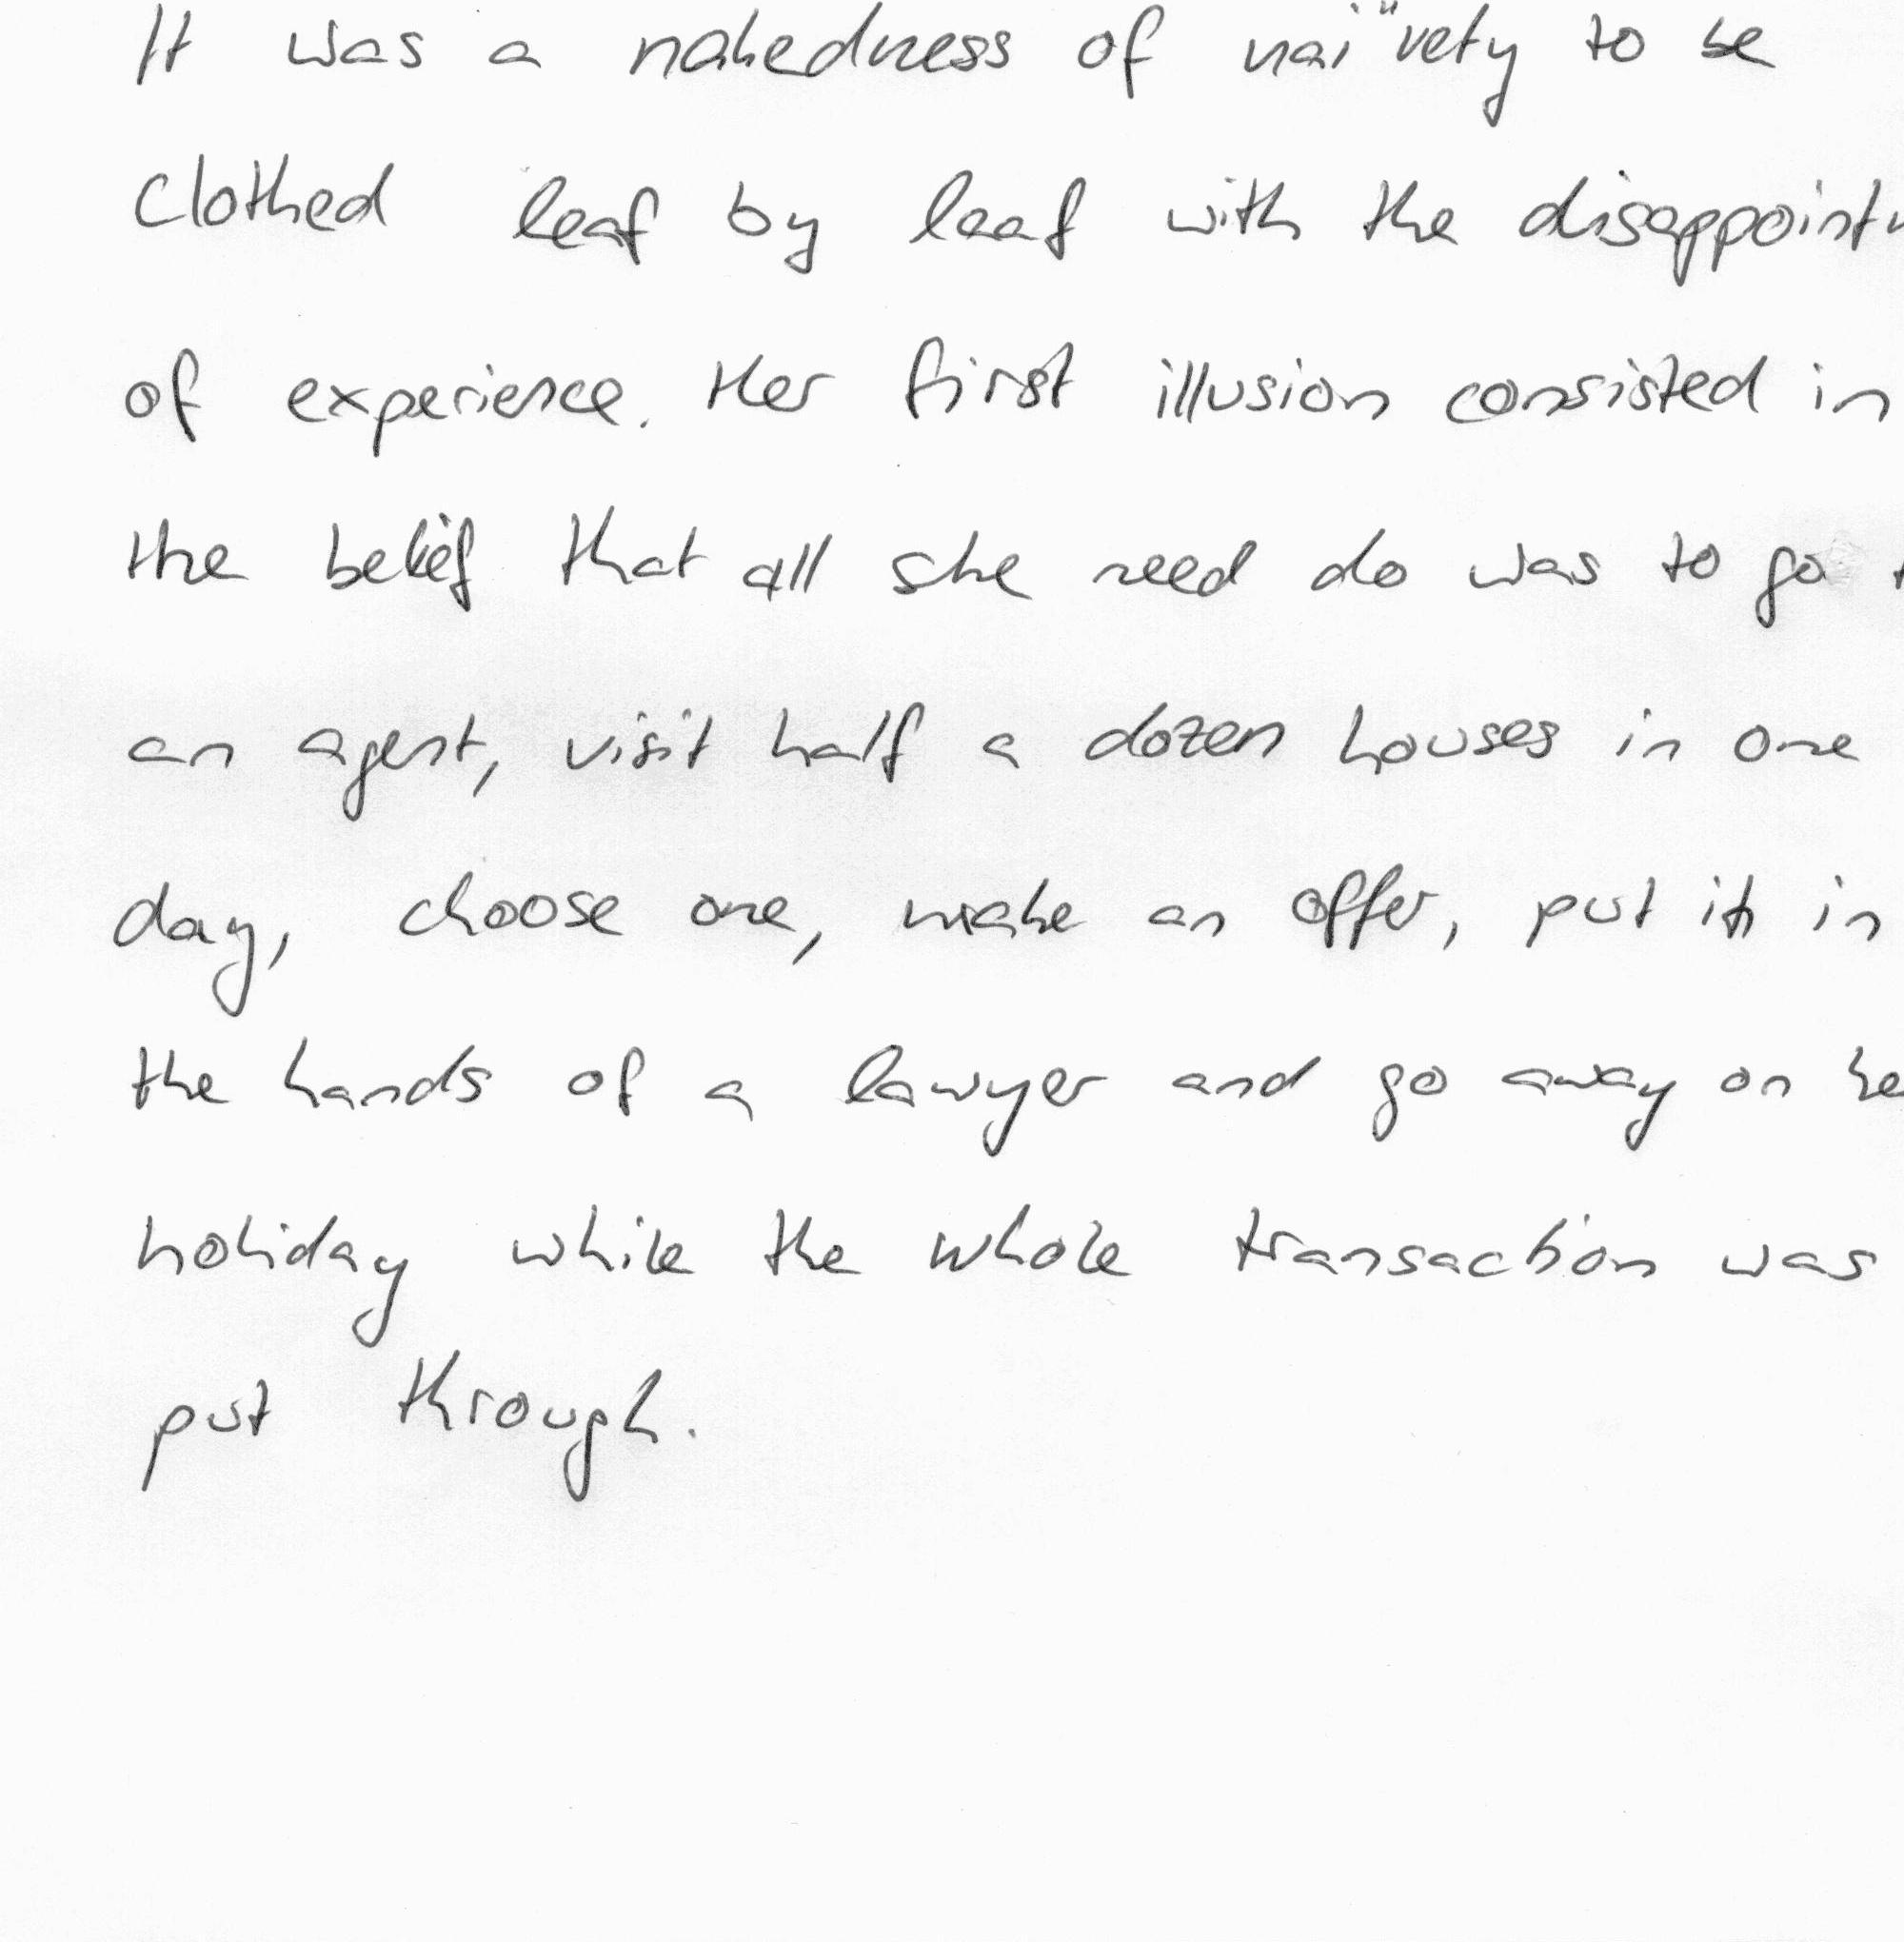 It was a nakedness of naïvety to be
clothed leaf by leaf with the
of experience. Her first illusion consisted in
the belief that all she need do was to go
an agent, visit half a dozen houses in one
day, choose one, make an offer, put it in
the hands of a lawyer and go away on
holiday while the whole transaction was
put through.